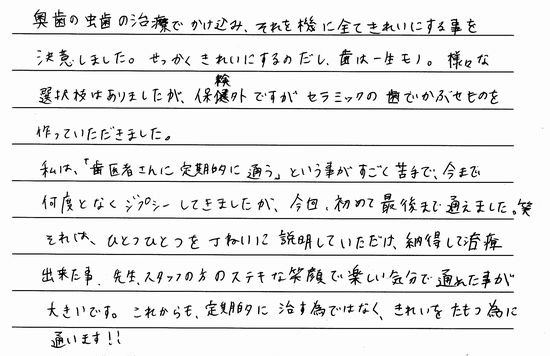 奥歯の虫歯の治療でかけ込み、それを機に全てきれいにする事を
決意しました。せっかくきれいにするのだし、歯は一生モノ。様々な
選択枝はありましたが、保険外ですがセラミックの歯でかぶせものを
作っていただきました。
私は、「歯医者さんに定期的に通う」という事がすごく苦手で、今まで
何度となくジプシーしてきましたが、今回、初めて最後まで通えました。笑
それは、ひとつひとつを丁ねいに説明していただけ、納得して治療
出来た事、先生、スタッフの方のステキな笑顔で楽しい気分で通れた事が
大きいです。これからも、定期的に治す為ではなく、きれいをたもつ為に
通います!!